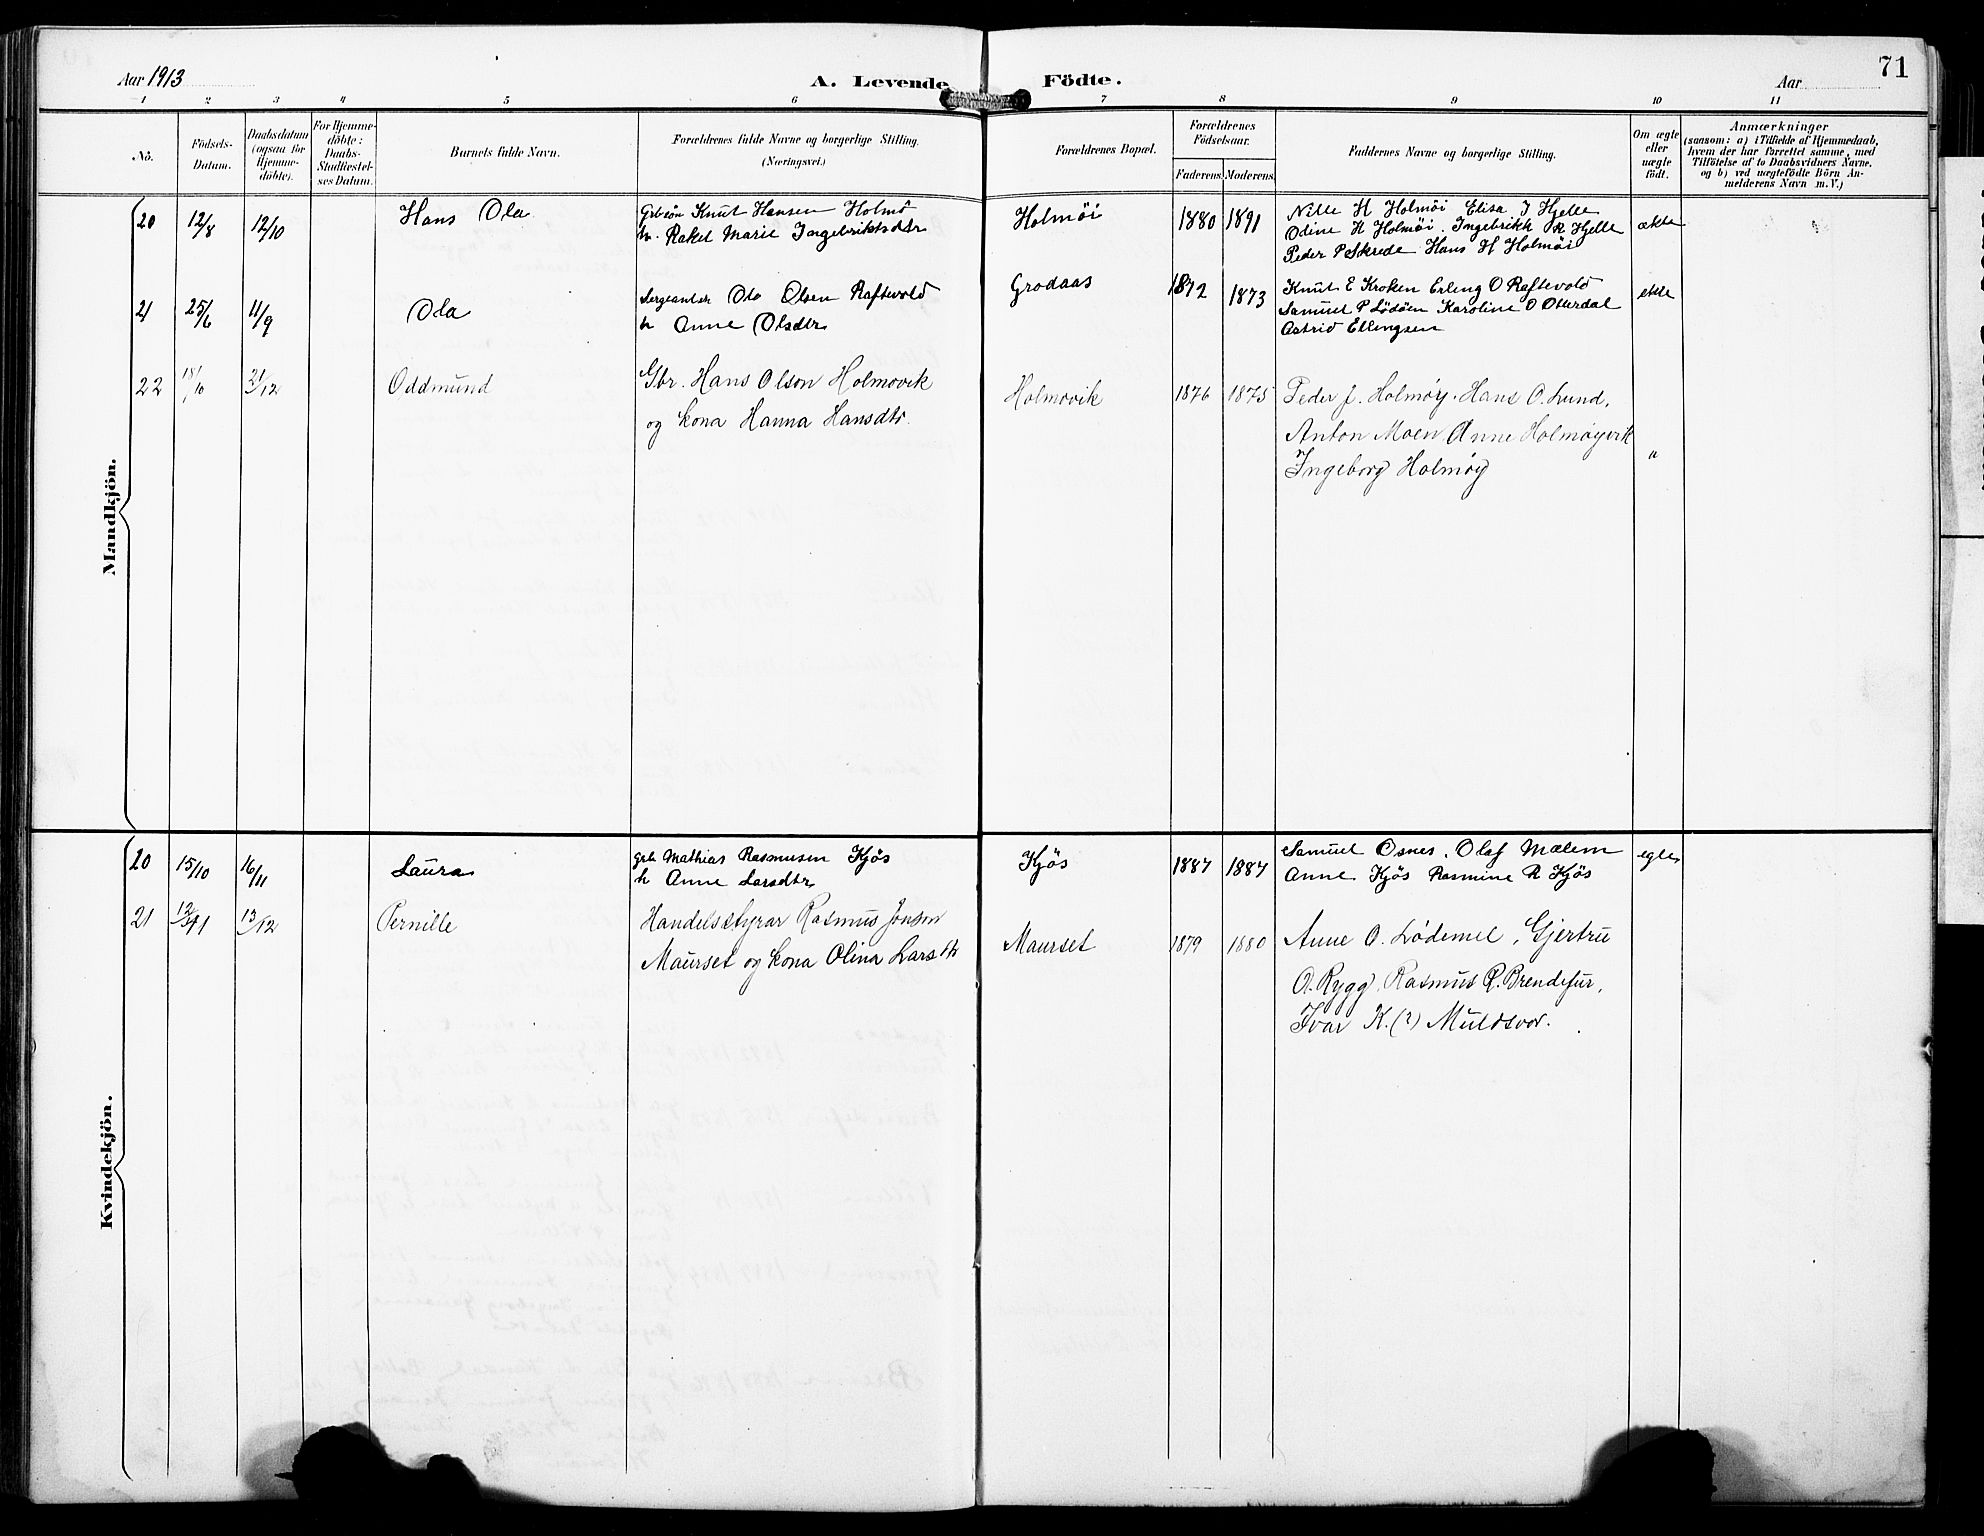 Aar 1913
A. Levende Födte.
Aar
71
1 2 3 4 5 6 7 8 9 10 11
No.
Födsels-
Datum.
Daabsdatum
(ogsaa for
Hjemme-
döbte).
For Hjemme-
döbte:
Daabs-
Stadfæstel-
ses Datum.
Barnets fulde Navn.
Forældrenes fulde Navne og borgerlige Stilling.
(Næringsvei.)
Forældrenes Bopæl.
Forældrenes
Födselsaar.
Faderens. Moderens.
Faddernes Navne og borgerlige Stilling.
Om ægte
eller
uægte
födt.
Anmærkninger
(saasom: a) i Tilfælde af Hjemmedaab,
hvem der har forrettet samme, med
Tilföielse af to Daabsvidners Navne.
og b) ved uægtefödte Börn An-
melderens Navn m.V.)
Mandkjön.
20 12/8 12/10 Hans Ola
Grbsön Knut Hansen Holmö
h. Rakel Marie Ingebriktsdtr
Holmöi 1880 1891
Nille H Holmöi Elisa I Hjelle
Odine H Holmöi. Ingebrikk R Hjelle
Peder P Skrede Hans H Holmöi
ækte
21 25/6 11/9 Ola
Sergeanter Ola Olsen Raftevold
h Anne Olsdtr
Grodaas 1872 1873
Knut E Kroken Erling O Raftevold
Samuel P Lödöen Karoline O Otterdal
Astrid Ellingsen
ekte
22 18/10 21/12 Oddmund
Gbr. Hans Olson Holmovik
og kona Hanna Hansdtr.
Holmovik 1876 1875
Peder J. Holmøy. Hans O. Lund,
Anton Moen Anne Holmøyvik
Ingeborg Holmøy
"
Kvindekjön.
20 15/10 16/11 Laura
Grb Mathias Rasmusen Kjös
h Anne Larsdtr
Kjös 1887 1887
Samuel Osnes. Olaf Mælem
Anne Kjös Rasmine R Kjös
egte
21 13/12 Pernille
Handelsstyrar Rasmus Jonson
Maurset og kona Olina Larsdtr
Maurset 1879 1880
Anne O. Lødemel, Gjertru
O. Rygg, Rasmus R. Brendefur,
Ivar K. (?) Muldsvor.